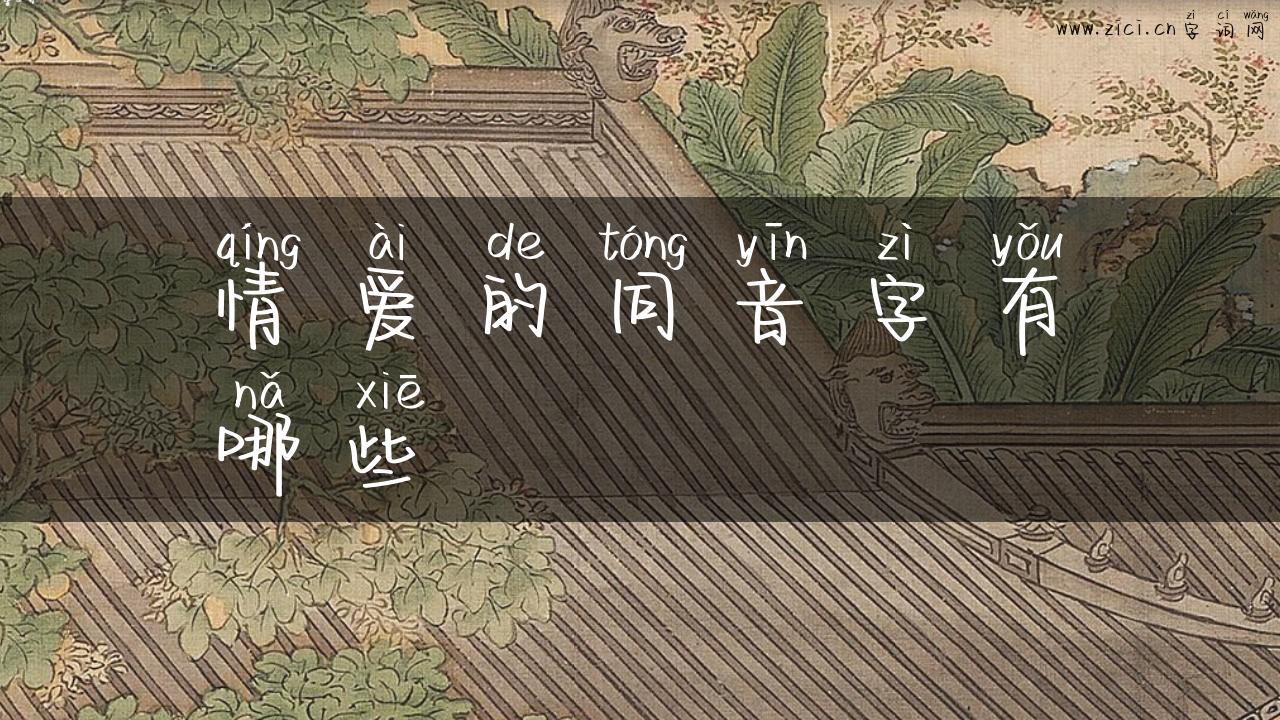 zì cí wǎng
www.zici.cn 字 词 网
qíng ài de tóng yīn zì yǒu
情 爱 的 同 音 字 有
nǎ xiē
哪 些